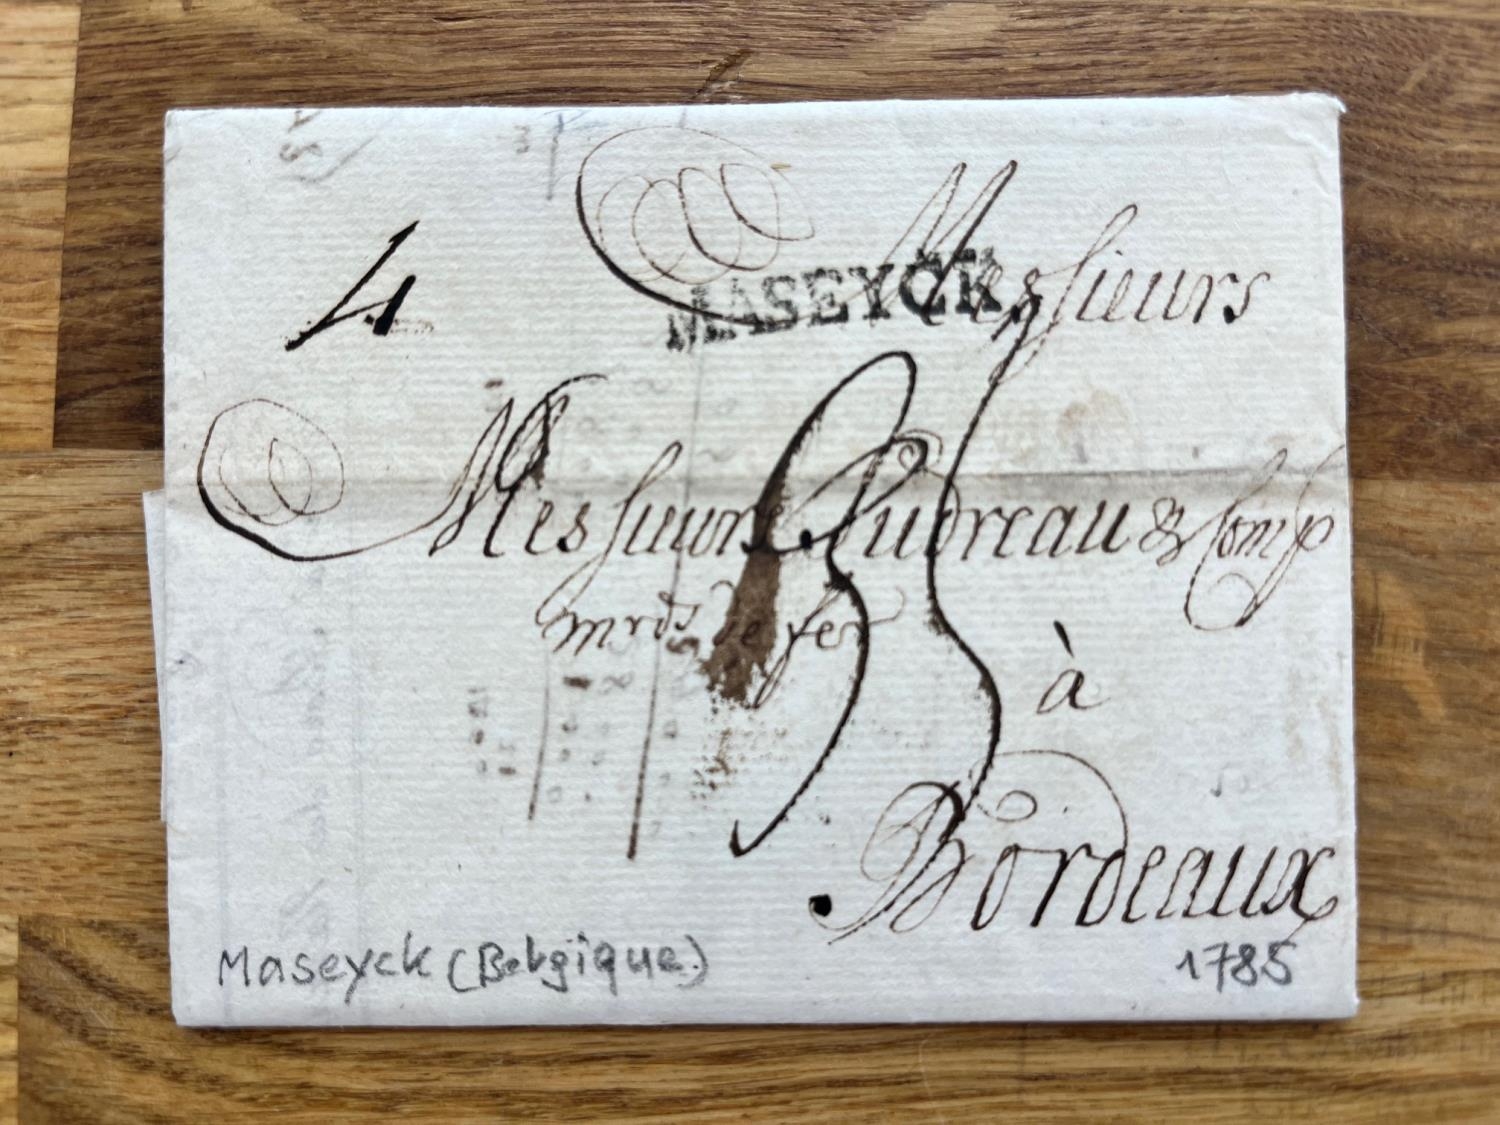 4
MASEYCK
Messieurs
Messieurs Pudreau & Comp
mrds de fer
à
Bordeaux
Maseyck (Belgique)
1785